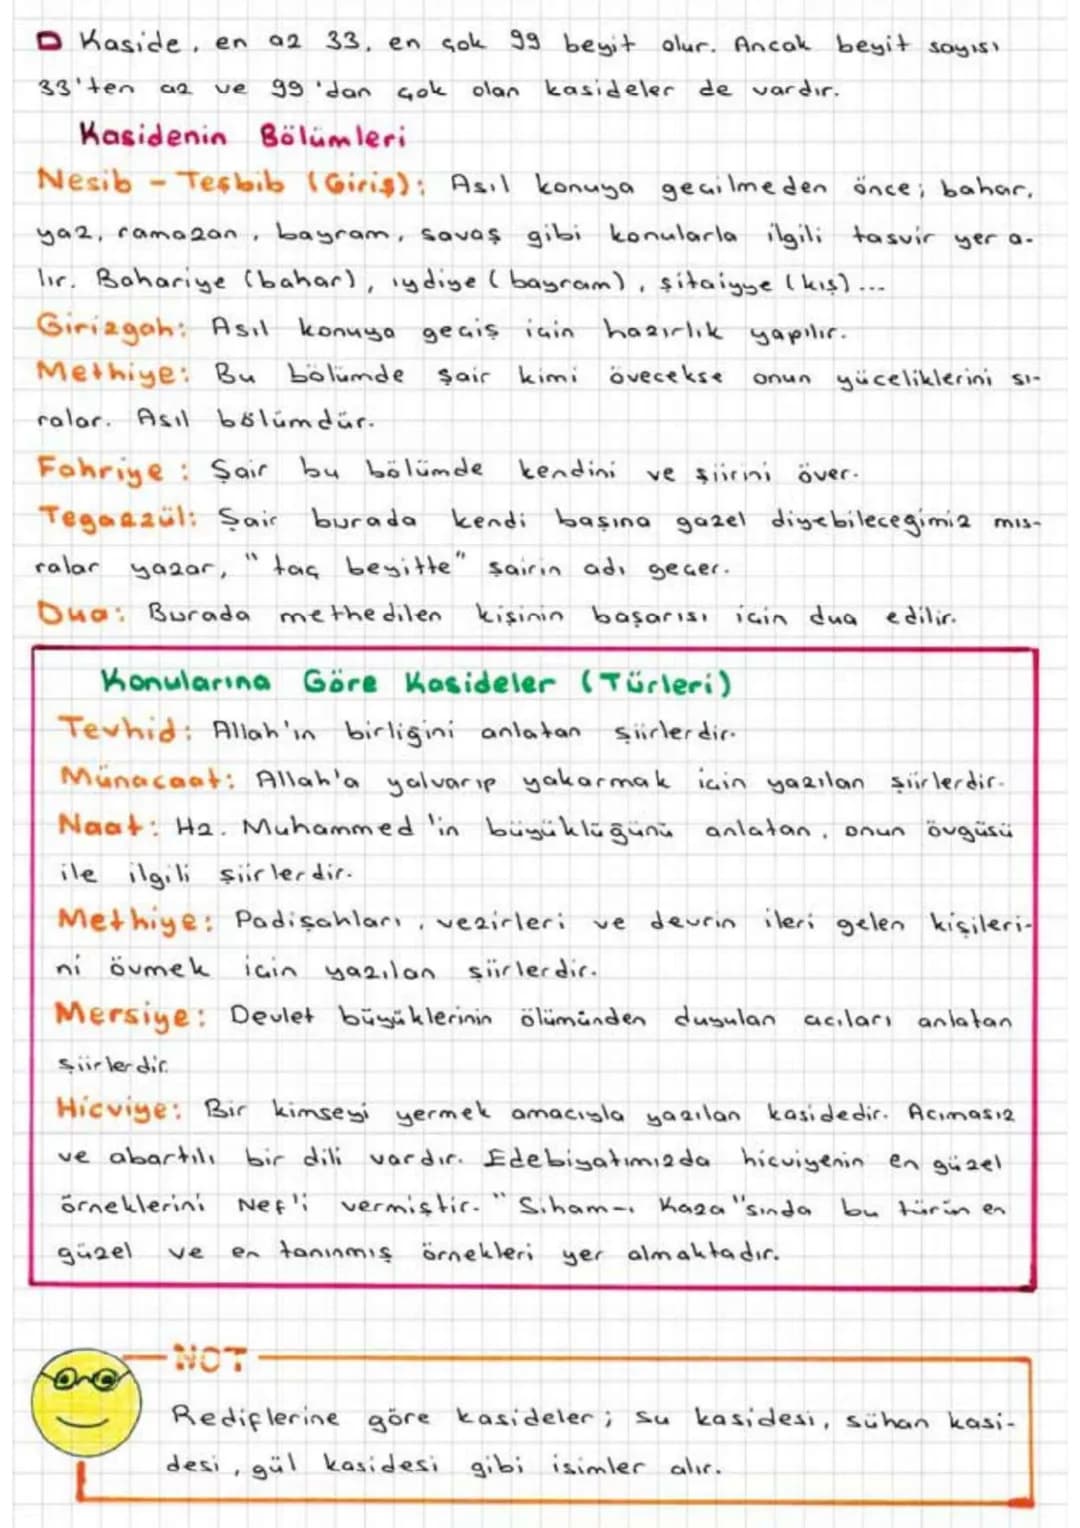 Kaside, en az 33, en çok 99 beyit olur. Ancak beyit sayısı
33'ten az ve 99'dan çok olan kasideler de vardır.
Kasidenin Bölümleri
Nesib - Teşbib (Giriş): Asıl konuya geçilmeden önce; bahar,
yaz, ramazan, bayram, savaş gibi konularla ilgili tasvir yer a-
lır. Bahariye (bahar), ıydiye (bayram), şitaiyye (kış)...
Girizgah: Asıl konuya geçiş için hazırlık yapılır.
Methiye: Bu bölümde şair kimi övecekse onun yüceliklerini sı-
ralar. Asıl bölümdür.
Fahriye: Şair bu bölümde kendini ve şiirini över.
Tegazzül: Şair burada kendi başına gazel diyebileceğimiz mıs-
ralar yazar, "taç beyitte" şairin adı geçer.
Dua: Burada methedilen kişinin başarısı için dua edilir.
Konularına Göre Kasideler (Türleri)
Tevhid: Allah'ın birliğini anlatan şiirlerdir.
Münacaat: Allah'a yalvarıp yakarmak için yazılan şiirlerdir.
Naat: Hz. Muhammed'in büyüklüğünü anlatan, onun övgüsü
ile ilgili şiirlerdir.
Methiye: Padişahları, vezirleri ve devrin ileri gelen kişileri-
ni övmek için yazılan şiirlerdir.
Mersiye: Devlet büyüklerinin ölümünden duyulan acıları anlatan
şiirlerdir.
Hicviye: Bir kimseyi yermek amacıyla yazılan kasidedir. Acımasız
ve abartılı bir dili vardır. Edebiyatımızda hicviyenin en güzel
örneklerini Nef'i vermiştir. "Siham-ı Kaza"sında bu türün en
güzel ve en tanınmış örnekleri yer almaktadır.
NOT
Rediflerine göre kasideler; su kasidesi, sühan kasi-
desi, gül kasidesi gibi isimler alır.